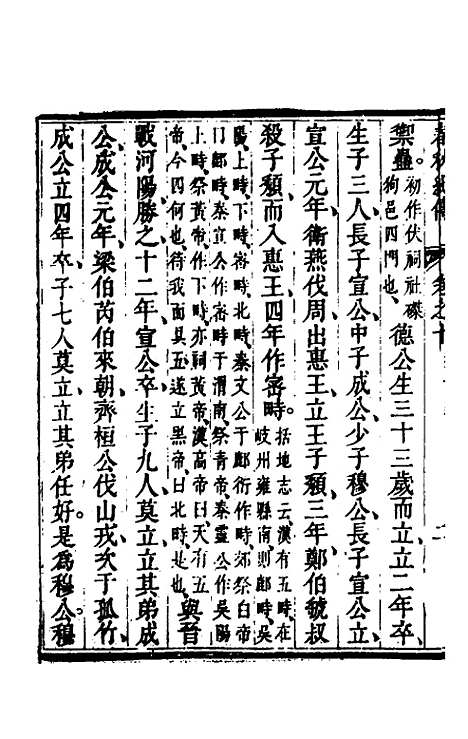 禦蠱。初作伏祠社磔
狗邑四門也、德公生三十三歲而立、立二年卒、
生子三人、長子宣公、中子成公、少子穆公、長子宣公立、
宣公元年、衛燕伐周、出惠王、立王子頹、三年、鄭伯虢叔
殺子頹、而入惠王、四年作密時。括地志云、漢有五時、在
岐州雍縣南、則鄜時、吳
陽上時、下時、密時、北時、秦文公于鄜衍作時、郊祭白帝
曰鄜時、秦宣公作密時于渭南、祭青帝、秦靈公作吳陽
上時、祭黃帝、作下時、亦祠炎帝、漢高帝曰、天有五
帝、今四何也、待我面具五、遂立黑帝、曰北時、是也、與晉
戰河陽、勝之、十二年、宣公卒、生子九人、莫立、立其弟成
公、成公元年、梁伯芮伯來朝、齊桓公伐山戎、次于孤竹、
成公立四年卒、子七人、莫立、立其弟任好、是爲穆公。穆